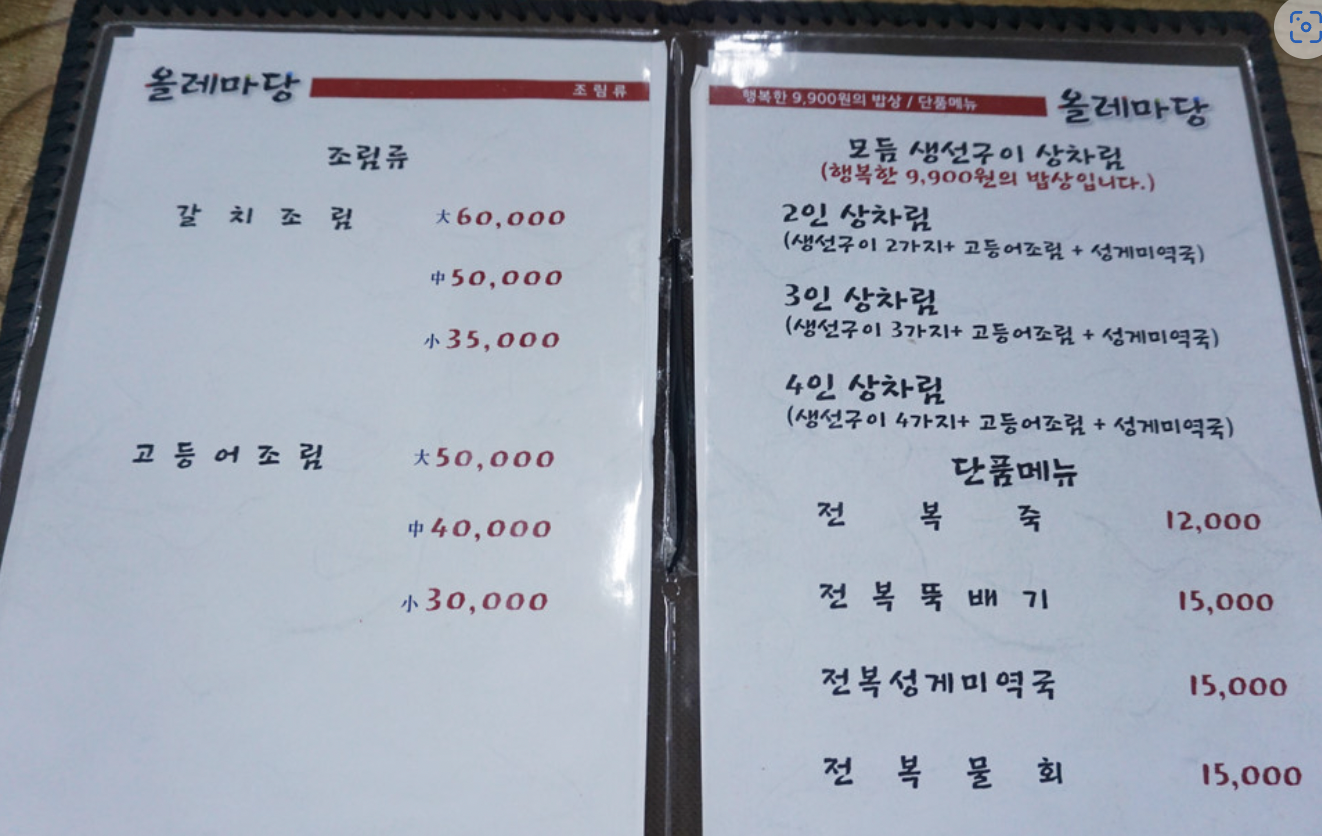 올레마당 조림류
조림류
갈치조림 大60,000
中50,000
小35,000
고등어조림 大50,000
中40,000
小30,000
행복한 9,900원의 밥상 / 단품메뉴 올레마당
모듬 생선구이 상차림
(행복한 9,900원의 밥상입니다.)
2인 상차림
(생선구이 2가지+ 고등어조림 + 성게미역국)
3인 상차림
(생선구이 3가지+ 고등어조림 + 성게미역국)
4인 상차림
(생선구이 4가지+ 고등어조림 + 성게미역국)
단품메뉴
전복죽 12,000
전복뚝배기 15,000
전복성게미역국 15,000
전복물회 15,000